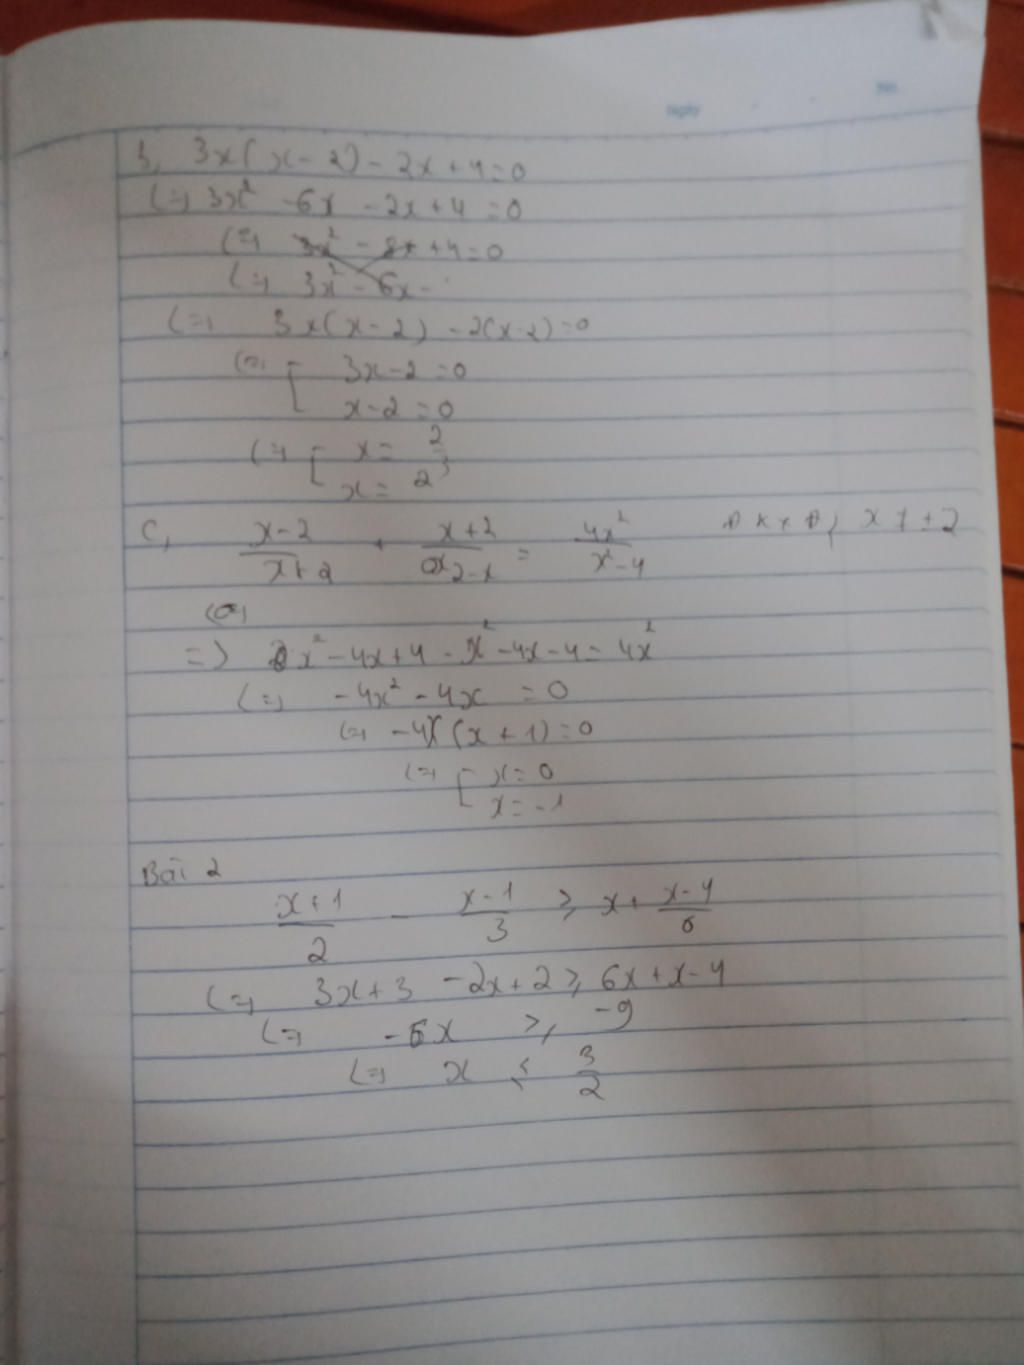 Ngày No.
b, 3x(x-2) - 2x+4=0
(=) 3x² -6x -2x+4 =0
(=) 3x² - 8x +4=0
(=) 3x² - 6x -
(=) 3x(x-2) -2(x-2)=0
(=) [ 3x-2=0
x-2=0
(=) [ x= 2/3
x= 2
c, (x-2)/(x+2) + (x+2)/(2-x) = 4x²/(x²-4) ĐKXĐ; x ≠ ±2
(=)
=) x² -4x+4 -x² -4x-4= 4x²
(=) -4x² -4x =0
(=) -4x(x+1)=0
(=) [ x=0
x=-1
Bài 2
(x+1)/2 - (x-1)/3 ≥ x+ (x-4)/6
(=) 3x+3 -2x+2 ≥ 6x+x-4
(=) -6x ≥ -9
(=) x ≤ 3/2